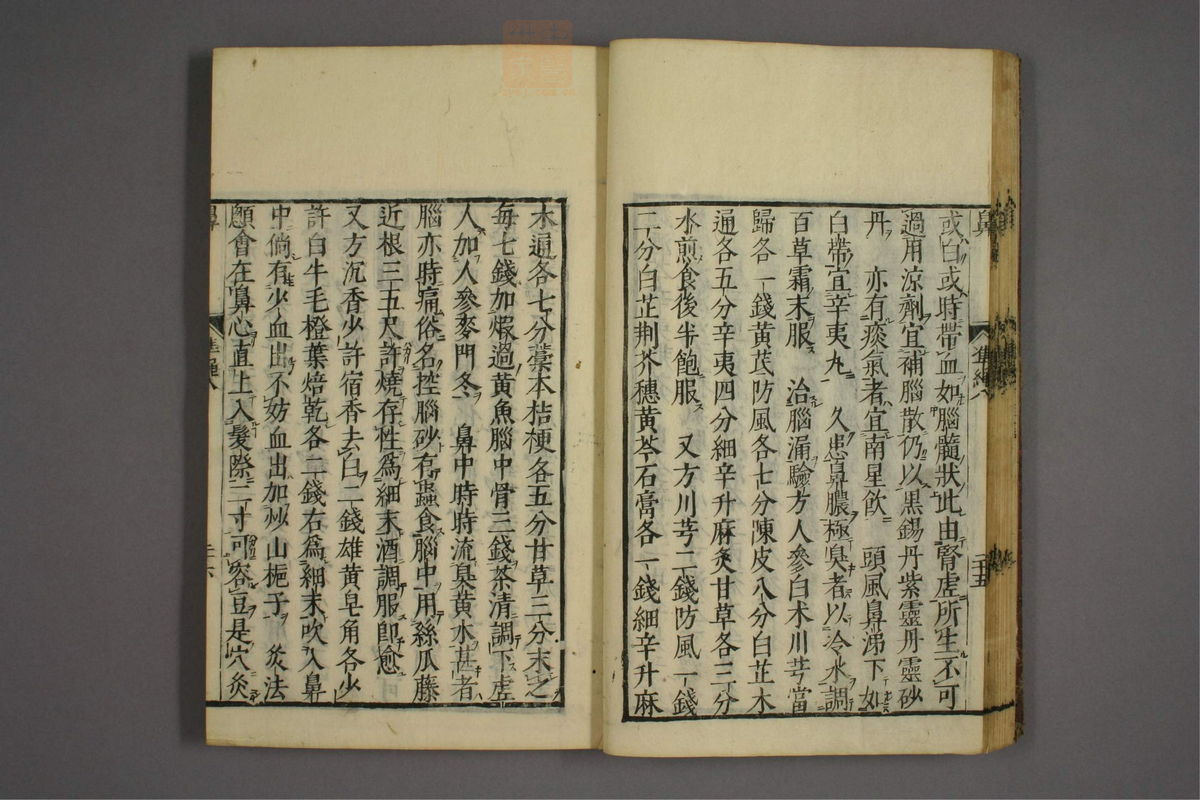 鼻 準繩八 二十五
或白或時帶血如腦髓狀此由腎虛所生不可
過用涼劑宜補腦散仍以黑錫丹紫靈丹靈砂
丹 亦有痰氣者宜南星飲 頭風鼻涕下如
白帶宜辛夷丸 久患鼻膿極臭者以冷水調
百草霜末服 治腦漏驗方人參白术川芎當
歸各一錢黃芪防風各七分陳皮八分白芷木
通各五分辛夷四分細辛升麻炙甘草各三分
水煎食後半飽服 又方川芎二錢防風一錢
二分白芷荆芥穗黃芩石膏各一錢細辛升麻
木通各七分藁本桔梗各五分甘草三分末之
每七錢加煅過黃魚腦中骨三錢茶清調下虛
人加人參麥門冬 鼻中時時流臭黃水甚者
腦亦時痛俗名控腦砂有蟲食腦中用絲瓜藤
近根三五尺許燒存性爲細末酒調服即愈
又方沉香少許宿香去白二錢雄黃皂角各少
許白牛毛橙葉焙乾各二錢右爲細末吹入鼻
中倘有少血出不妨血出加炒山梔子 灸法
顖會在鼻心直上入髮際二寸可容豆是穴灸
鼻 準繩八 二十六